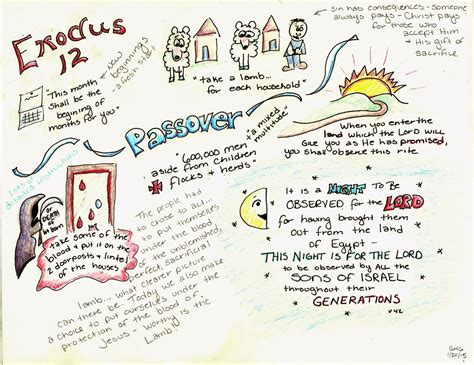 Exodus
12
new
beginnings
a fresh start
"This month
shall be the
begining of
months for you"
"take a lamb...
for each household"
sin has consequences - someone
always pays - Christ pays
for those who
accept Him
His gift of
sacrifice
Passover
"600,000 men
aside from children
flocks & herds"
"a mixed
multitude"
When you enter the
land which the Lord will
Give you as He has promised,
you shall observe this rite
Lots of
detailed instructions
DEATH
OF
1st born
take some of the
blood & put it on the
2 doorposts & lintel
of the houses
The people had
to chose to all...
to put themselves
under the blood
of the unblemished,
perfect sacrificial
lamb... what clearer picture
can there be. Today we also make
a choice to put ourselves under the
protection of the blood of
Jesus - worthy is the
Lamb!
It is a NIGHT To Be
OBSERVED for the LORD
for having brought them
out from the land
of Egypt -
THIS NIGHT IS FOR THE LORD
to be observed by ALL the
SONS OF ISRAEL
throughout their
GENERATIONS
v42
GMG